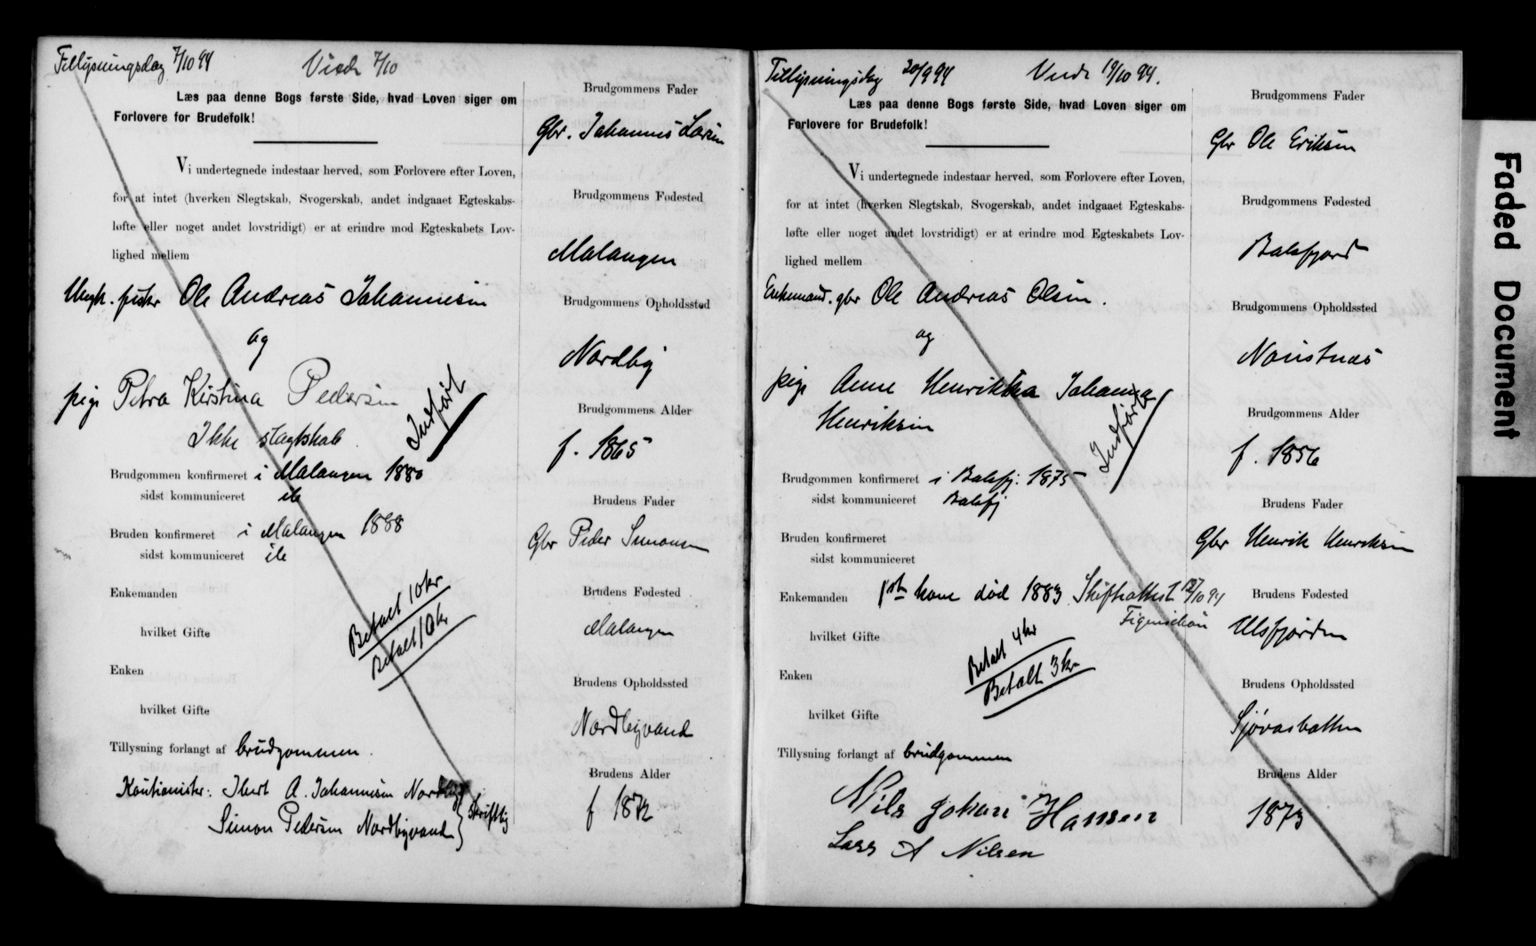 Tillysningsdag 7/10 94 Viede 7/10
Læs paa denne Bogs første Side, hvad Loven siger om
Forlovere for Brudefolk!
Vi undertegnede indestaar herved, som Forlovere efter Loven,
for at intet (hverken Slegtskab, Svogerskab, andet indgaaet Egteskabs-
løfte eller noget andet lovstridigt) er at erindre mod Egteskabets Lov-
lighed mellem
Ungk. Ole Andreas Johannesen
og
pige Petra Kirstina Pedersen
Indført
Ikke slagtskab.
Brudgommen konfirmeret i Malangen 1880
sidst kommuniceret ib
Bruden konfirmeret i Malangen 1888
sidst kommuniceret ib
Enkemanden
hvilket Gifte
Betalt 10 kr
Betalt 10 kr
Enken
hvilket Gifte
Tillysning forlangt af brudgommen.
Kautionister: A. Johannesen Nordby
Simon Pedersen Nordbyvand } skriftlig
Brudgommens Fader
Gbr. Johannes Larsen
Brudgommens Fødested
Malangen
Brudgommens Opholdssted
Nordby
Brudgommens Alder
f. 1865
Brudens Fader
Gbr Peder Simonsen
Brudens Fødested
Malangen
Brudens Opholdssted
Nordbyvand
Brudens Alder
f 1872
Tillysningsdag 30/9 94 Viede 19/10 94.
Læs paa denne Bogs første Side, hvad Loven siger om
Forlovere for Brudefolk!
Vi undertegnede indestaar herved, som Forlovere efter Loven,
for at intet (hverken Slegtskab, Svogerskab, andet indgaaet Egteskabs-
løfte eller noget andet lovstridigt) er at erindre mod Egteskabets Lov-
lighed mellem
Enkemand. gbr Ole Andreas Olsen.
og
pige Anne Henrikka Johanna
Henriksen
Indført
Brudgommen konfirmeret i Balsfj. 1875
sidst kommuniceret Balsfj
Bruden konfirmeret
sidst kommuniceret
Enkemanden 1ste kone død 1883 Skifteattest 12/10 94
hvilket Gifte
Betalt 4 kr
Betalt 3 kr
Enken
hvilket Gifte
Tillysning forlangt af brudgommen
Nils Johan Hansen
Lars A Nilsen
Brudgommens Fader
Gbr Ole Eriksen
Brudgommens Fødested
Balsfjord
Brudgommens Opholdssted
Brudgommens Alder
f. 1856
Brudens Fader
Gbr Henrik Henriksen
Brudens Fødested
Ulsfjorden
Brudens Opholdssted
Sjøvasbotten
Brudens Alder
1873
Faded Document